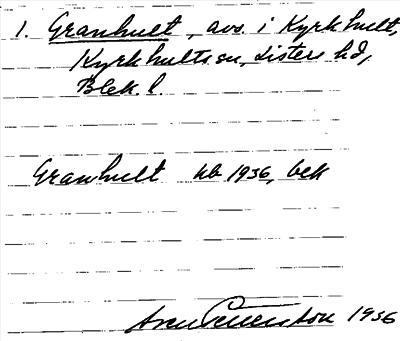 1. Granhult, avs. i Kyrkhult,
Kyrkhults sn, Listers hd,
Blek. l
Granhult kb 1936, bek
Sven Benson 1936